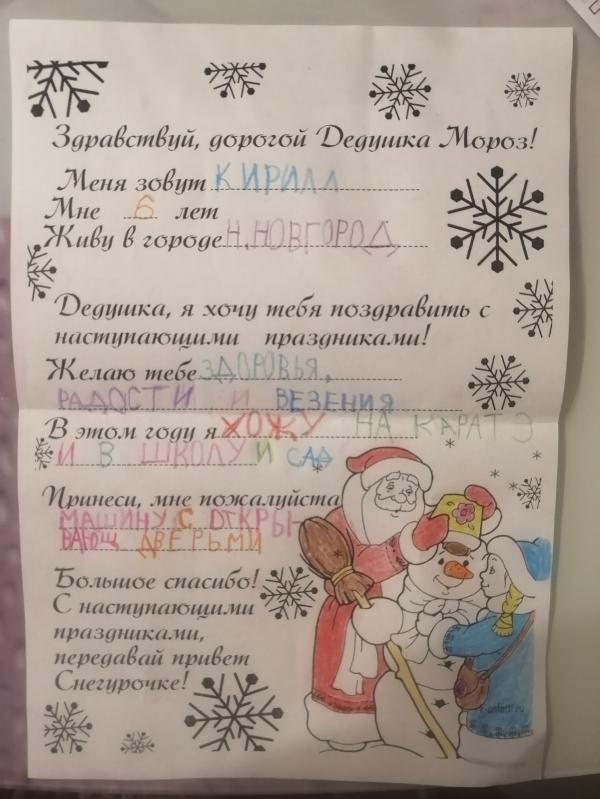 Здравствуй, дорогой Дедушка Мороз!
Меня зовут КИРИЛЛ
Мне 6 лет
Живу в городе Н.НОВГОРОД
Дедушка, я хочу тебя поздравить с
наступающими праздниками!
Желаю тебе ЗДОРОВЬЯ,
РАДОСТИ И ВЕЗЕНИЯ
В этом году я ХОЖУ НА КАРАТЭ
И В ШКОЛУ И САД
Принеси, мне пожалуйста
МАШИНУ С ОТКРЫ-
ВАЮЩ ДВЕРЬМИ
Большое спасибо!
С наступающими
праздниками,
передавай привет
Снегурочке!